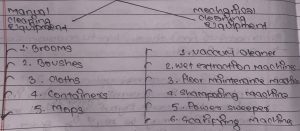 Manual
cleaning
equipment
Mechanical
cleaning
equipment
1. Brooms
2. Brushes
3. Cloths
4. Containers
5. Mops
1. Vaccum cleaner
2. Wet extraction machine
3. Floor maintenance machine
4. Shampooing machine
5. Power sweeper
6. Scarifying machine